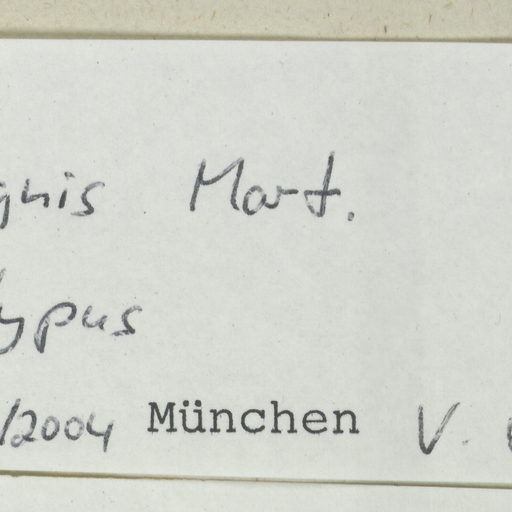 gnis Mart.
ypus
/2004 München V.